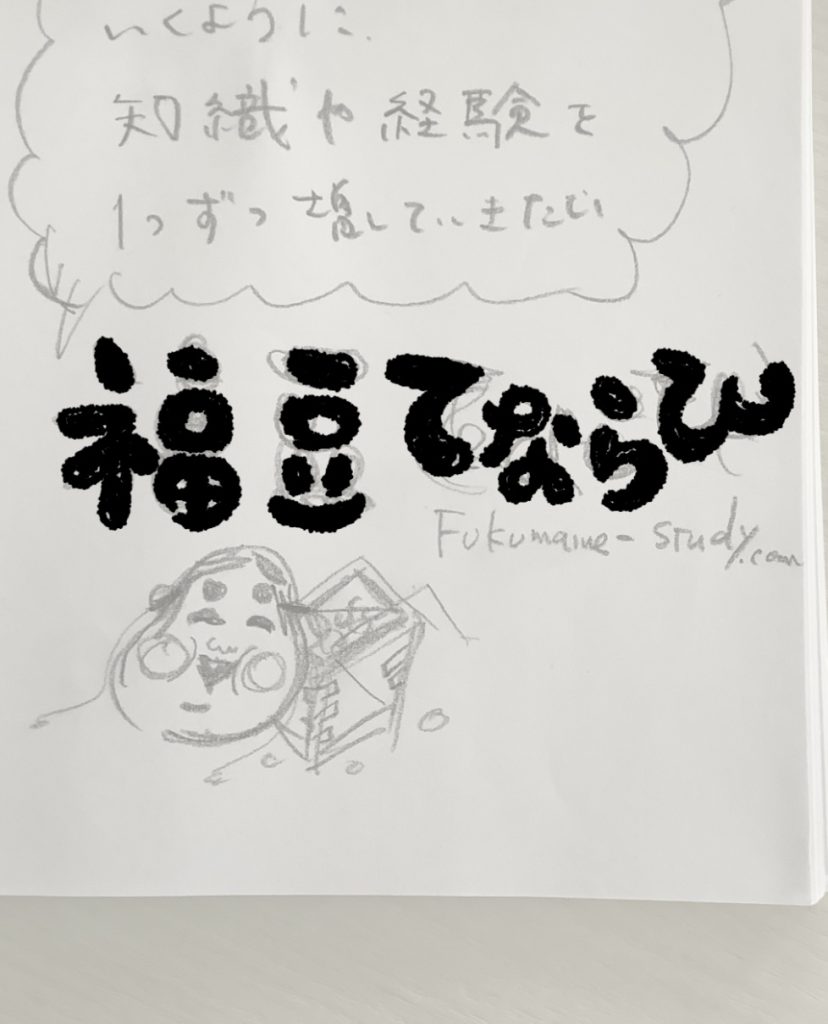 いくように、
知識や経験を
1つずつ増していきたい
福豆てならひ
Fukumame-study.com